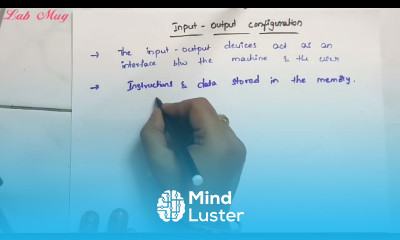 Lab Mug
Input - Output configuration
→ The input - output devices act as an
interface b/w the machine & the user
→ Instructions & data stored in the memory.
Mind
Luster